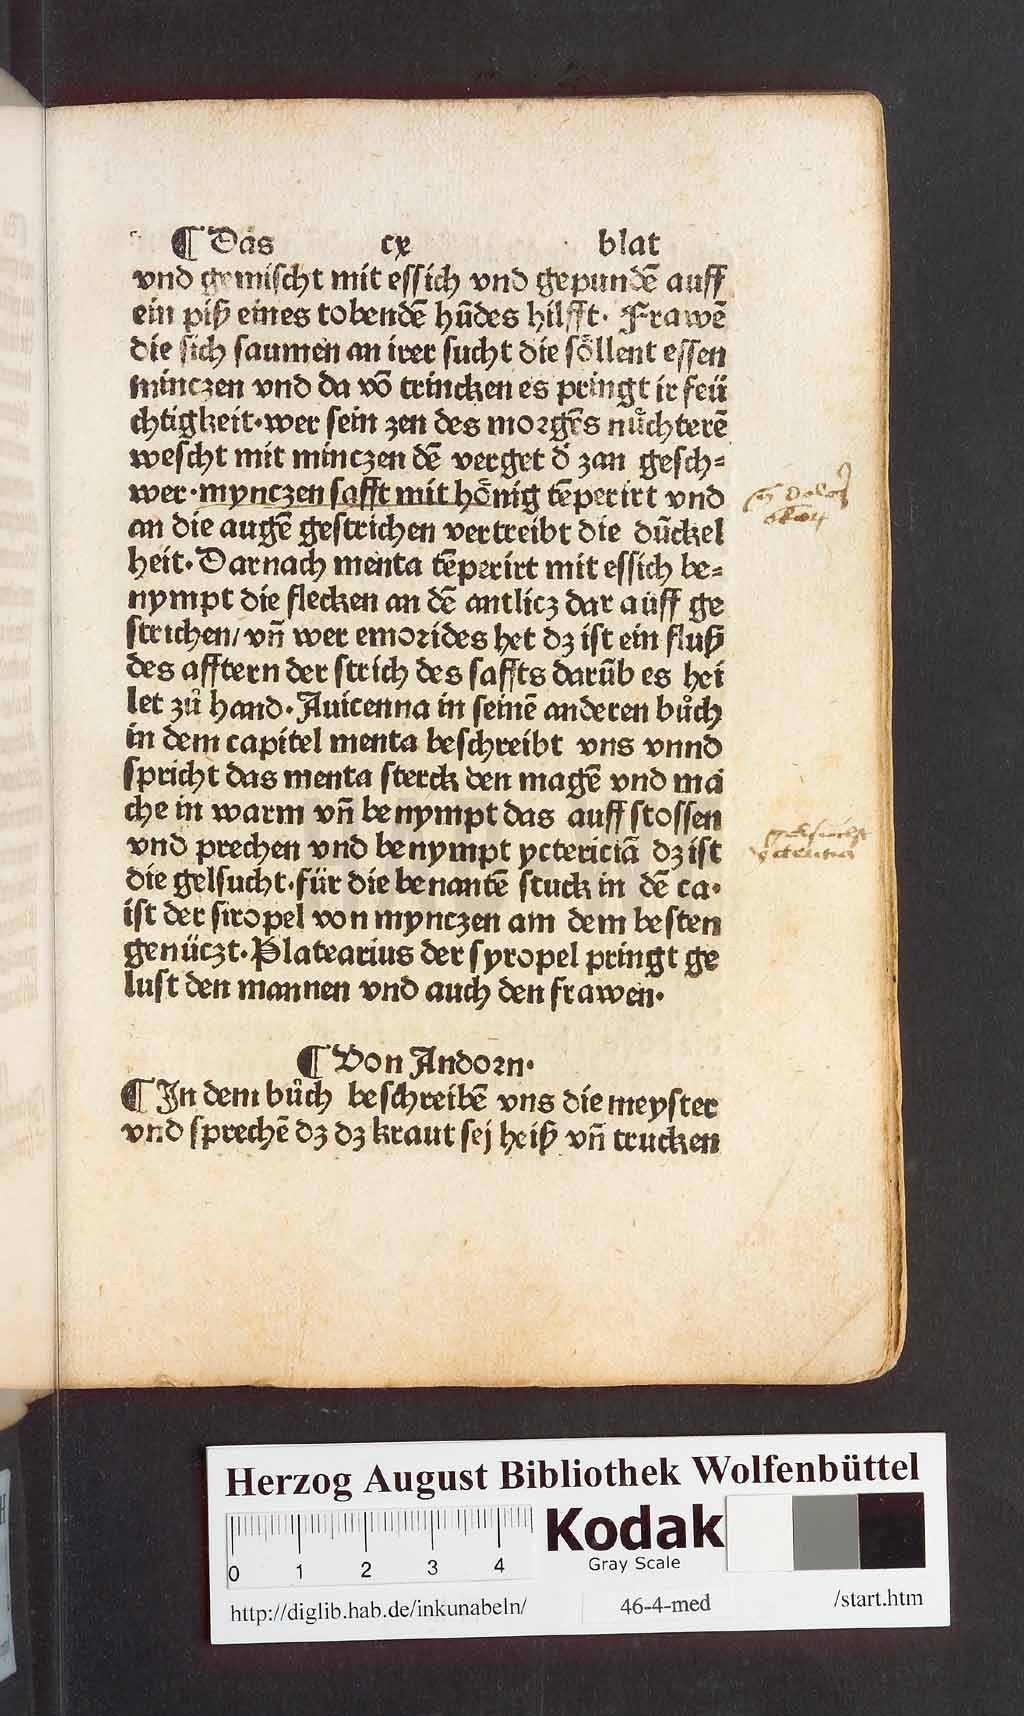 ¶ Das cx blat
vnd gemischt mit essich vnd gepundē auff
ein piß eines tobendē hūdes hilfft. Frawē
die sich saumen an irer sucht die soͤllent essen
minczen vnd da vō trincken es pringt ir feü
chtigkeit.wer sein zen des morgēs nuͤchterē
wescht mit minczen dē verget d̕ zan gesch=
wer.mynczen safft mit hoͤnig tēperirt vnd
an die augē gestrichen vertreibt die dūckel
heit.Darnach menta tēperirt mit essich be=
nympt die flecken an dē antlicz dar auff ge
strichen/ vn̄ wer emorides het dz ist ein fluß
des afftern der strich des saffts darūb es hei
let zuͦ hand.Auicenna in seinē anderen buͦch
in dem capitel menta beschreibt vns vnnd
spricht das menta sterck den magē vnd ma
che in warm vn̄ benympt das auff stossen
vnd prechen vnd benympt yctericiā dz ist
die gelsucht.für die benantē stuck in dē ca.
ist der siropel von mynczen am dem besten
genüczt.Platearius der syropel pringt ge
lust den mannen vnd auch den frawen.
¶ Von Andorn.
¶ In dem buͦch beschreibē vns die meyster
vnd sprechē dz dz kraut sej heiß vn̄ trucken
Herzog August Bibliothek Wolfenbüttel
0 1 2 3 4
Kodak
Gray Scale
http://diglib.hab.de/inkunabeln/ 46-4-med /start.htm